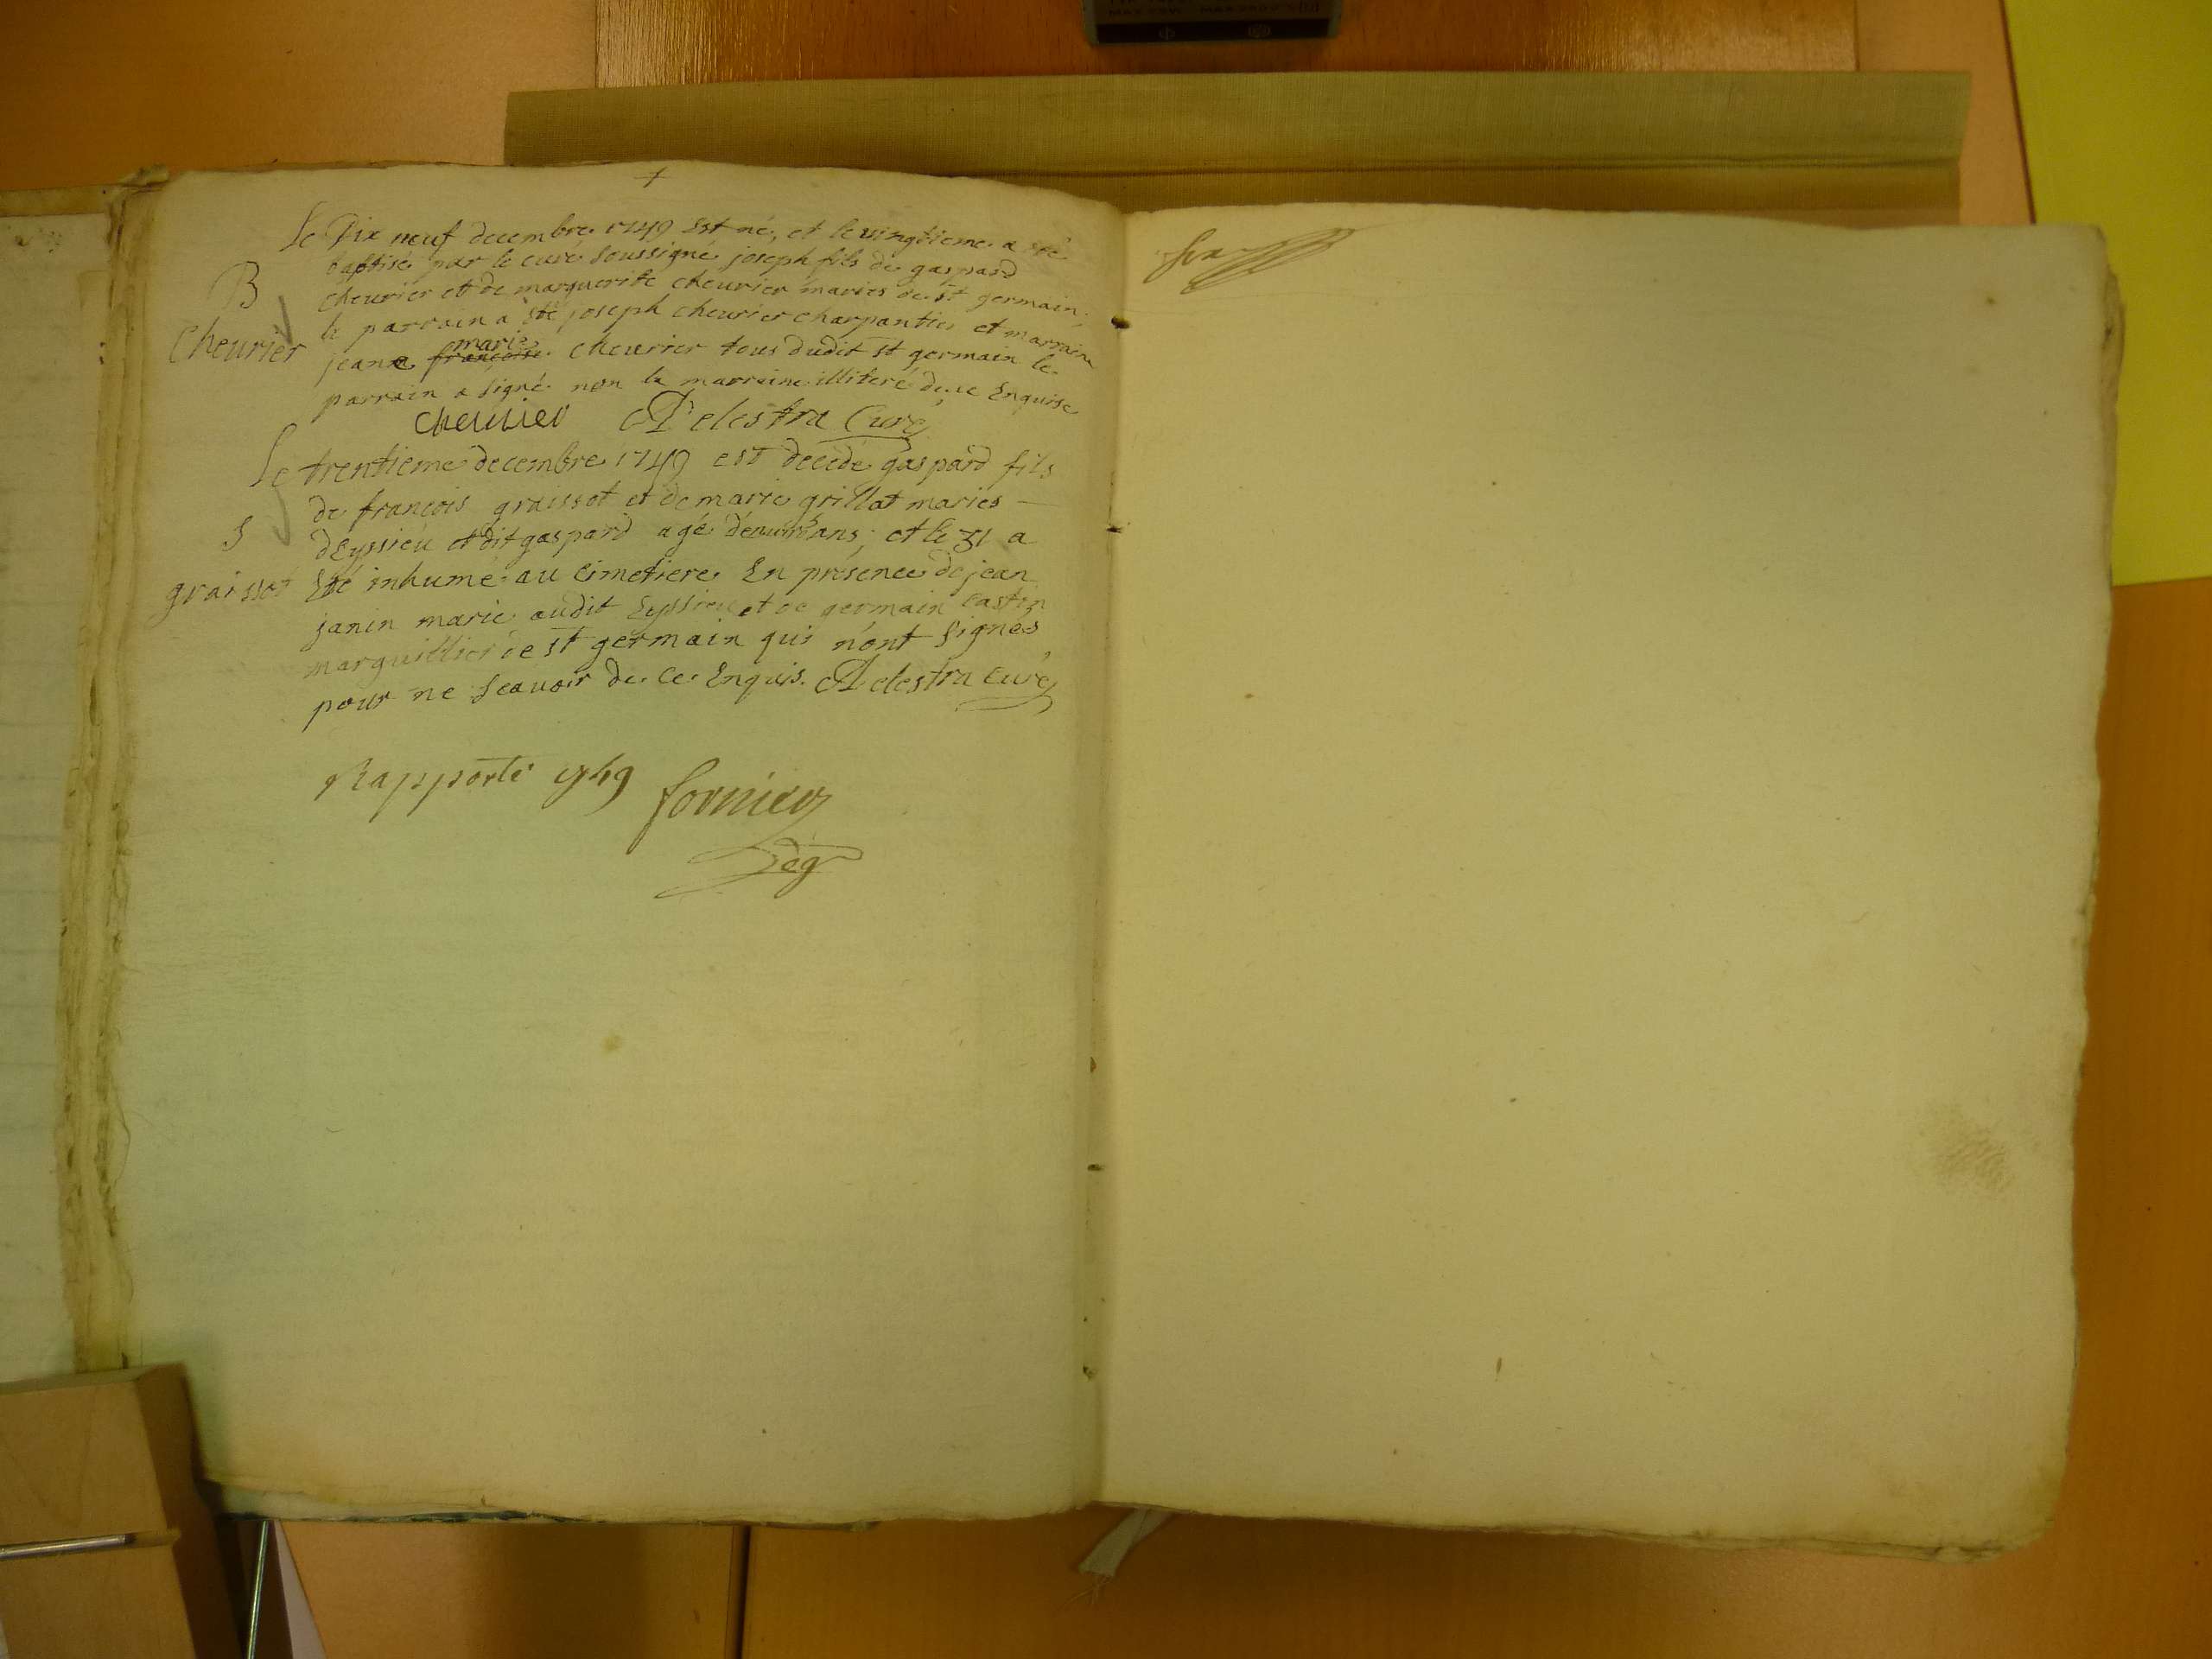 +
Le Dix neuf decembre 1749 Est né, et le vingtieme a été
baptisé par le curé soussigné joseph fils de gaspard
B
cheurier et de marguerite cheurier maries de st germain,
le parrain a été joseph cheurier charpantier et marraine
Cheurier
marie
jeanne francoise cheurier tous dudit st germain le
parrain a signé non la marraine illiteré de ce Enquise
cheurier Delestra Curé
Le trentieme decembre 1749 est decedé gaspard fils
de francois graissot et de marie grillat maries
S
dEyssieu et dit gaspard agé ans, et le 31 a
graissot
Eté inhumé au cimetiere En présence de jean
janin marie audit Eyssieu et de germain castin
marguillier de st germain qui n'ont signés
pour ne scavoir de ce Enquis. Delestra curé
Rapporté 1749 fornier